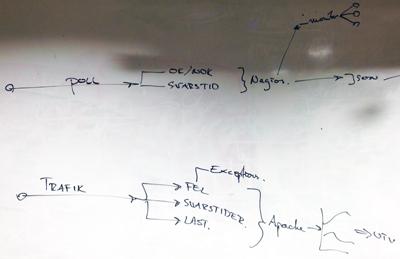 POLL
OK/NOK
SVARSTID
Nagios.
JSON
TRAFIK
Exceptions.
FEL
SVARSTIDER.
LAST.
Apache